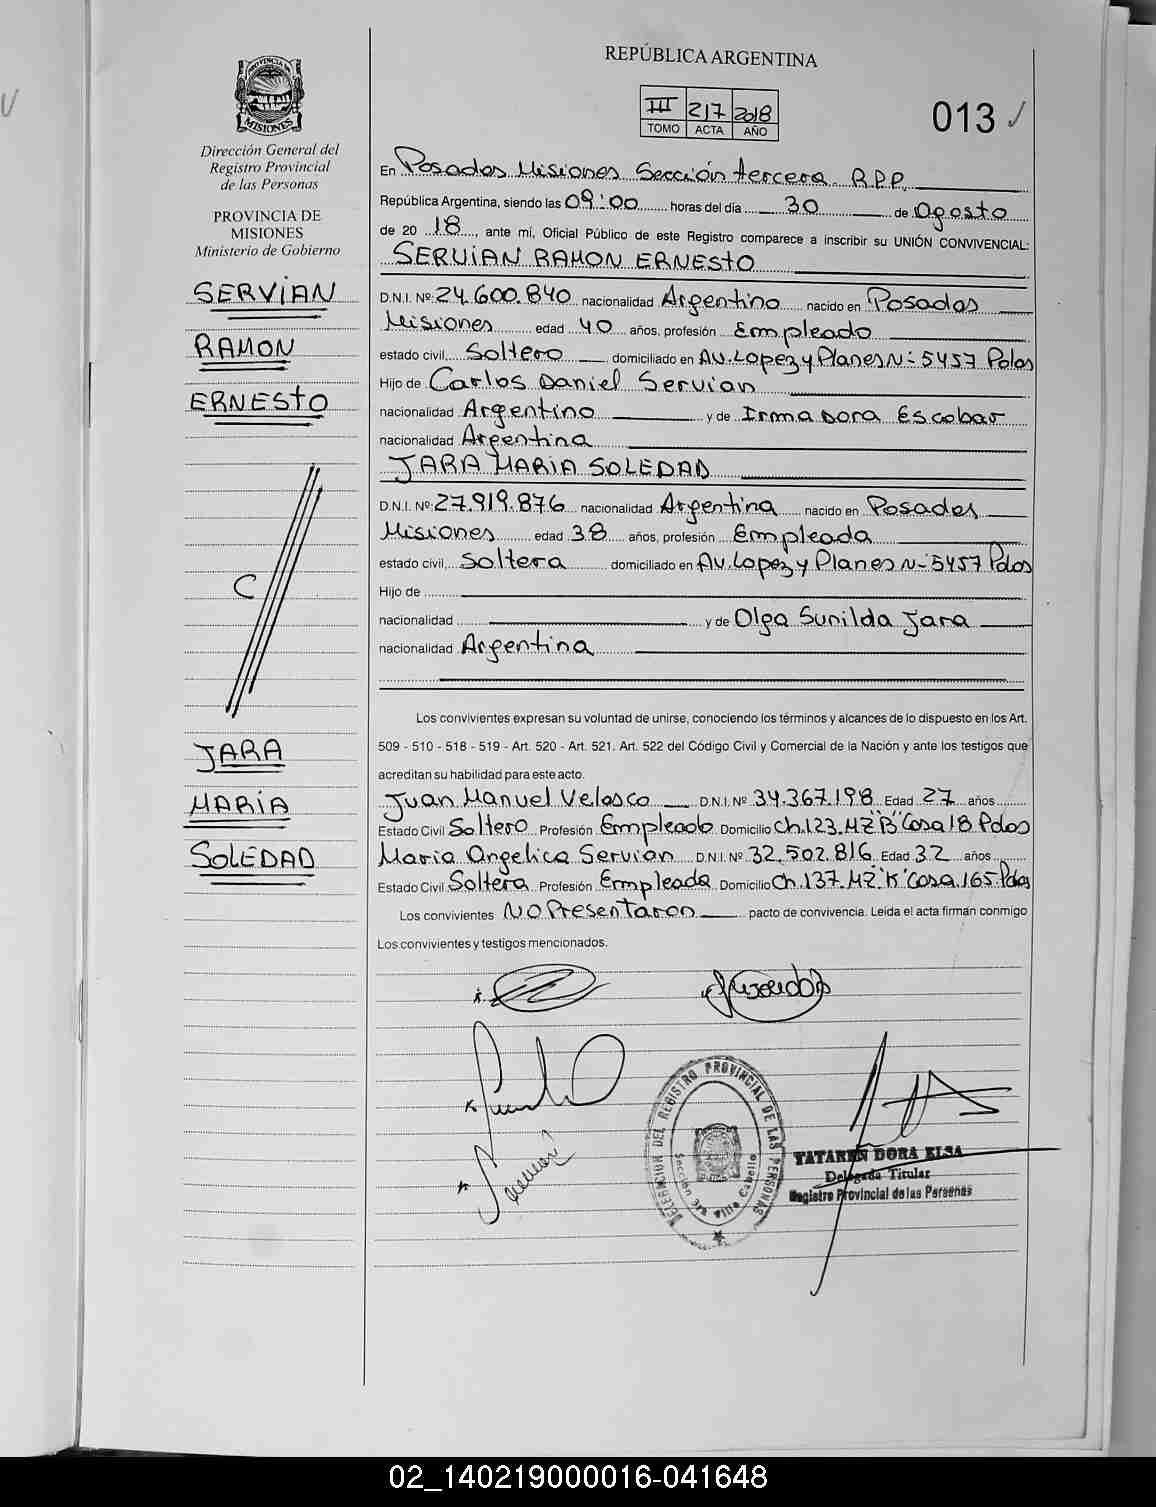 REPÚBLICA ARGENTINA
PROVINCIA DE
MISIONES
Dirección General del
Registro Provincial
de las Personas
PROVINCIA DE
MISIONES
Ministerio de Gobierno
III 217 2018
TOMO ACTA AÑO
013
SERVIAN
RAMON
ERNESTO
C
JARA
MARIA
SOLEDAD
En Posadas Misiones Sección tercera R.P.P.
República Argentina, siendo las 09:00 horas del día 30 de Agosto
de 20 18, ante mí, Oficial Público de este Registro comparece a inscribir su UNIÓN CONVIVENCIAL:
SERVIAN RAMON ERNESTO
D.N.I. Nº: 24.600.840 nacionalidad Argentino nacido en Posadas
Misiones edad 40 años, profesión Empleado
estado civil, Soltero domiciliado en Av. Lopez y Planes N- 5457 Pdas
Hijo de Carlos Daniel Servian
nacionalidad Argentino y de Irma Dora Escobar
nacionalidad Argentina
JARA MARIA SOLEDAD
D.N.I. Nº: 27.919.876 nacionalidad Argentina nacido en Posadas
Misiones edad 38 años, profesión Empleada
estado civil, Soltera domiciliado en Av. Lopez y Planes N- 5457 Pdas
Hijo de
nacionalidad y de Olga Sunilda Jara
nacionalidad Argentina
Los convivientes expresan su voluntad de unirse, conociendo los términos y alcances de lo dispuesto en los Art.
509 - 510 - 518 - 519 - Art. 520 - Art. 521. Art. 522 del Código Civil y Comercial de la Nación y ante los testigos que
acreditan su habilidad para este acto.
Juan Manuel Velasco D.N.I. Nº 34.367.198 Edad 27 años
Estado Civil Soltero Profesión Empleado Domicilio Ch.123.MZ"B"Casa 18 Pdas
Maria Angelica Servian D.N.I. Nº 32.502.816 Edad 32 años
Estado Civil Soltera Profesión Empleada Domicilio Ch.137.MZ"K"Casa.165.Pdas
Los convivientes NO Presentaron pacto de convivencia. Leída el acta firman conmigo
Los convivientes y testigos mencionados.
DELEGACION DEL REGISTRO PROVINCIAL DE LAS PERSONAS
Sección 3ra Villa Cabello
TATAREN DORA ELSA
Delegada Titular
Registro Provincial de las Personas
02_140219000016-041648